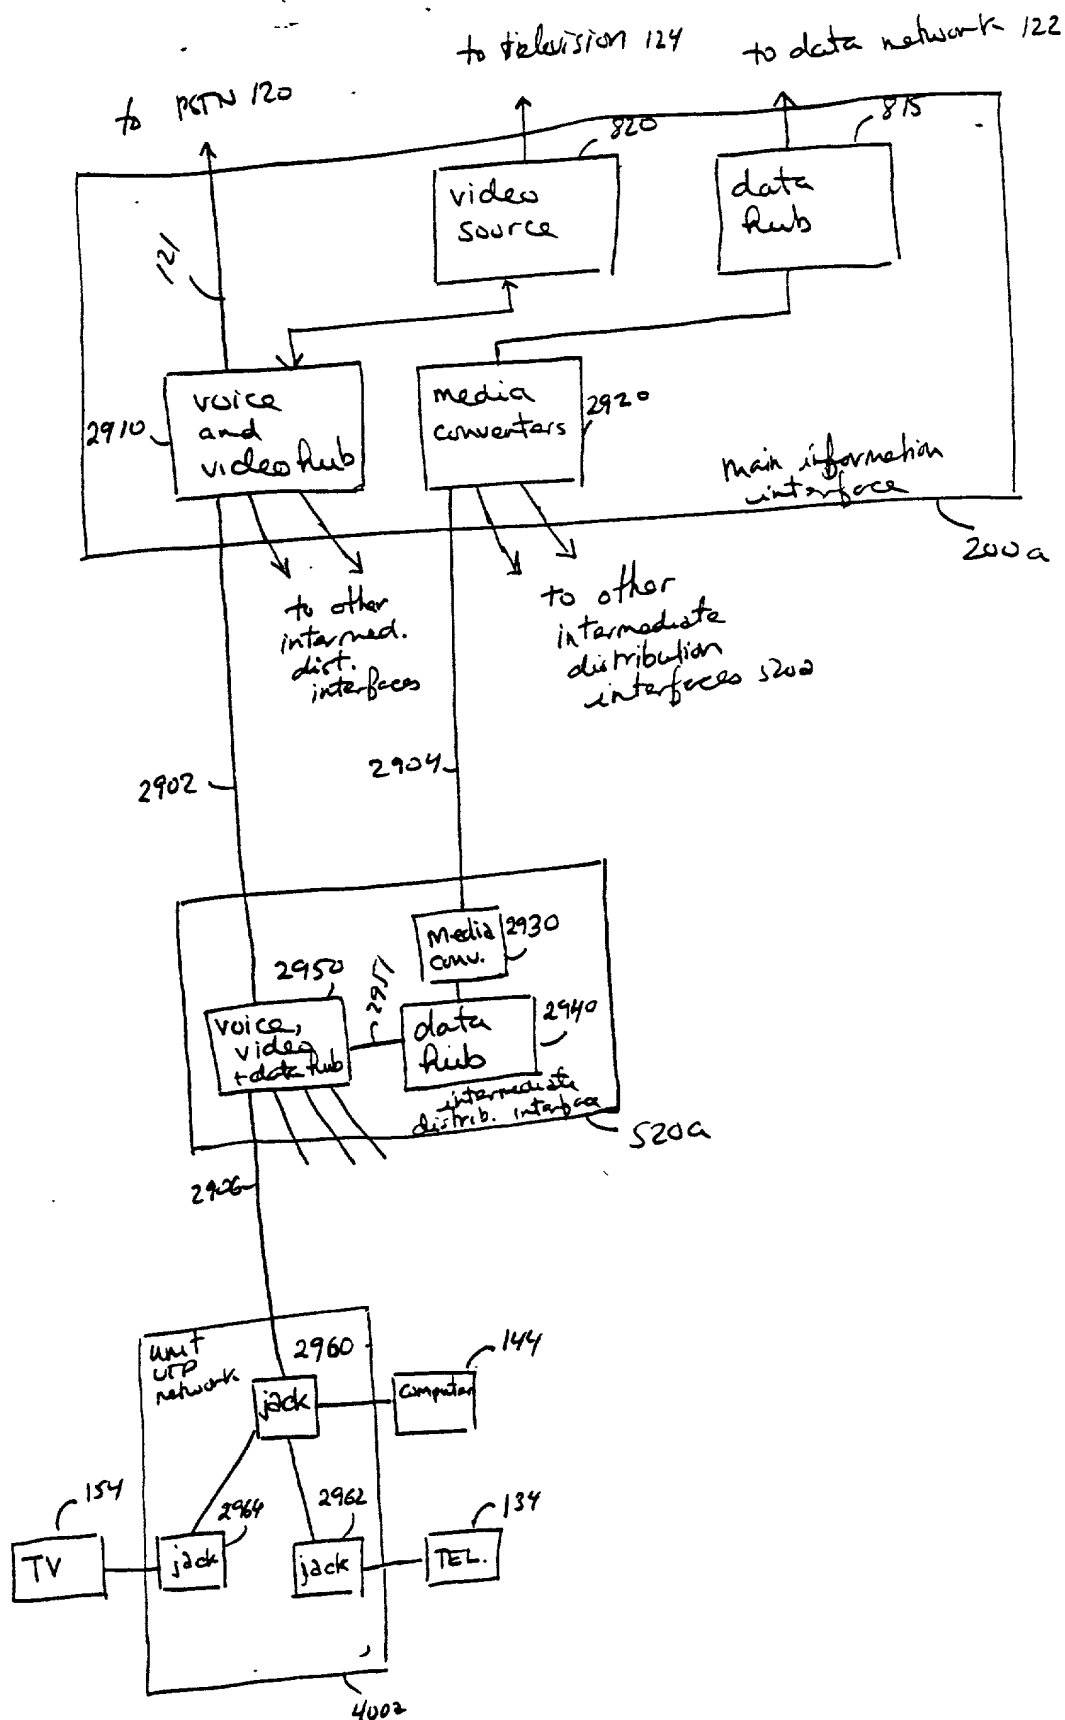 to television 124
to data network 122
to PSTN 120
820
815
video
source
data
hub
121
2910
voice
and
video hub
media
converters
2920
main information
interface
200a
to other
intermed.
dist.
interfaces
to other
intermediate
distribution
interfaces 520a
2902
2904
media
conv.
2930
2950
2951
2940
voice,
video
+ data hub
data
hub
intermediate
distrib. interface
520a
2906
unit
UTP
network
2960
144
jack
computer
154
2964
2962
134
TV
jack
jack
TEL.
400a